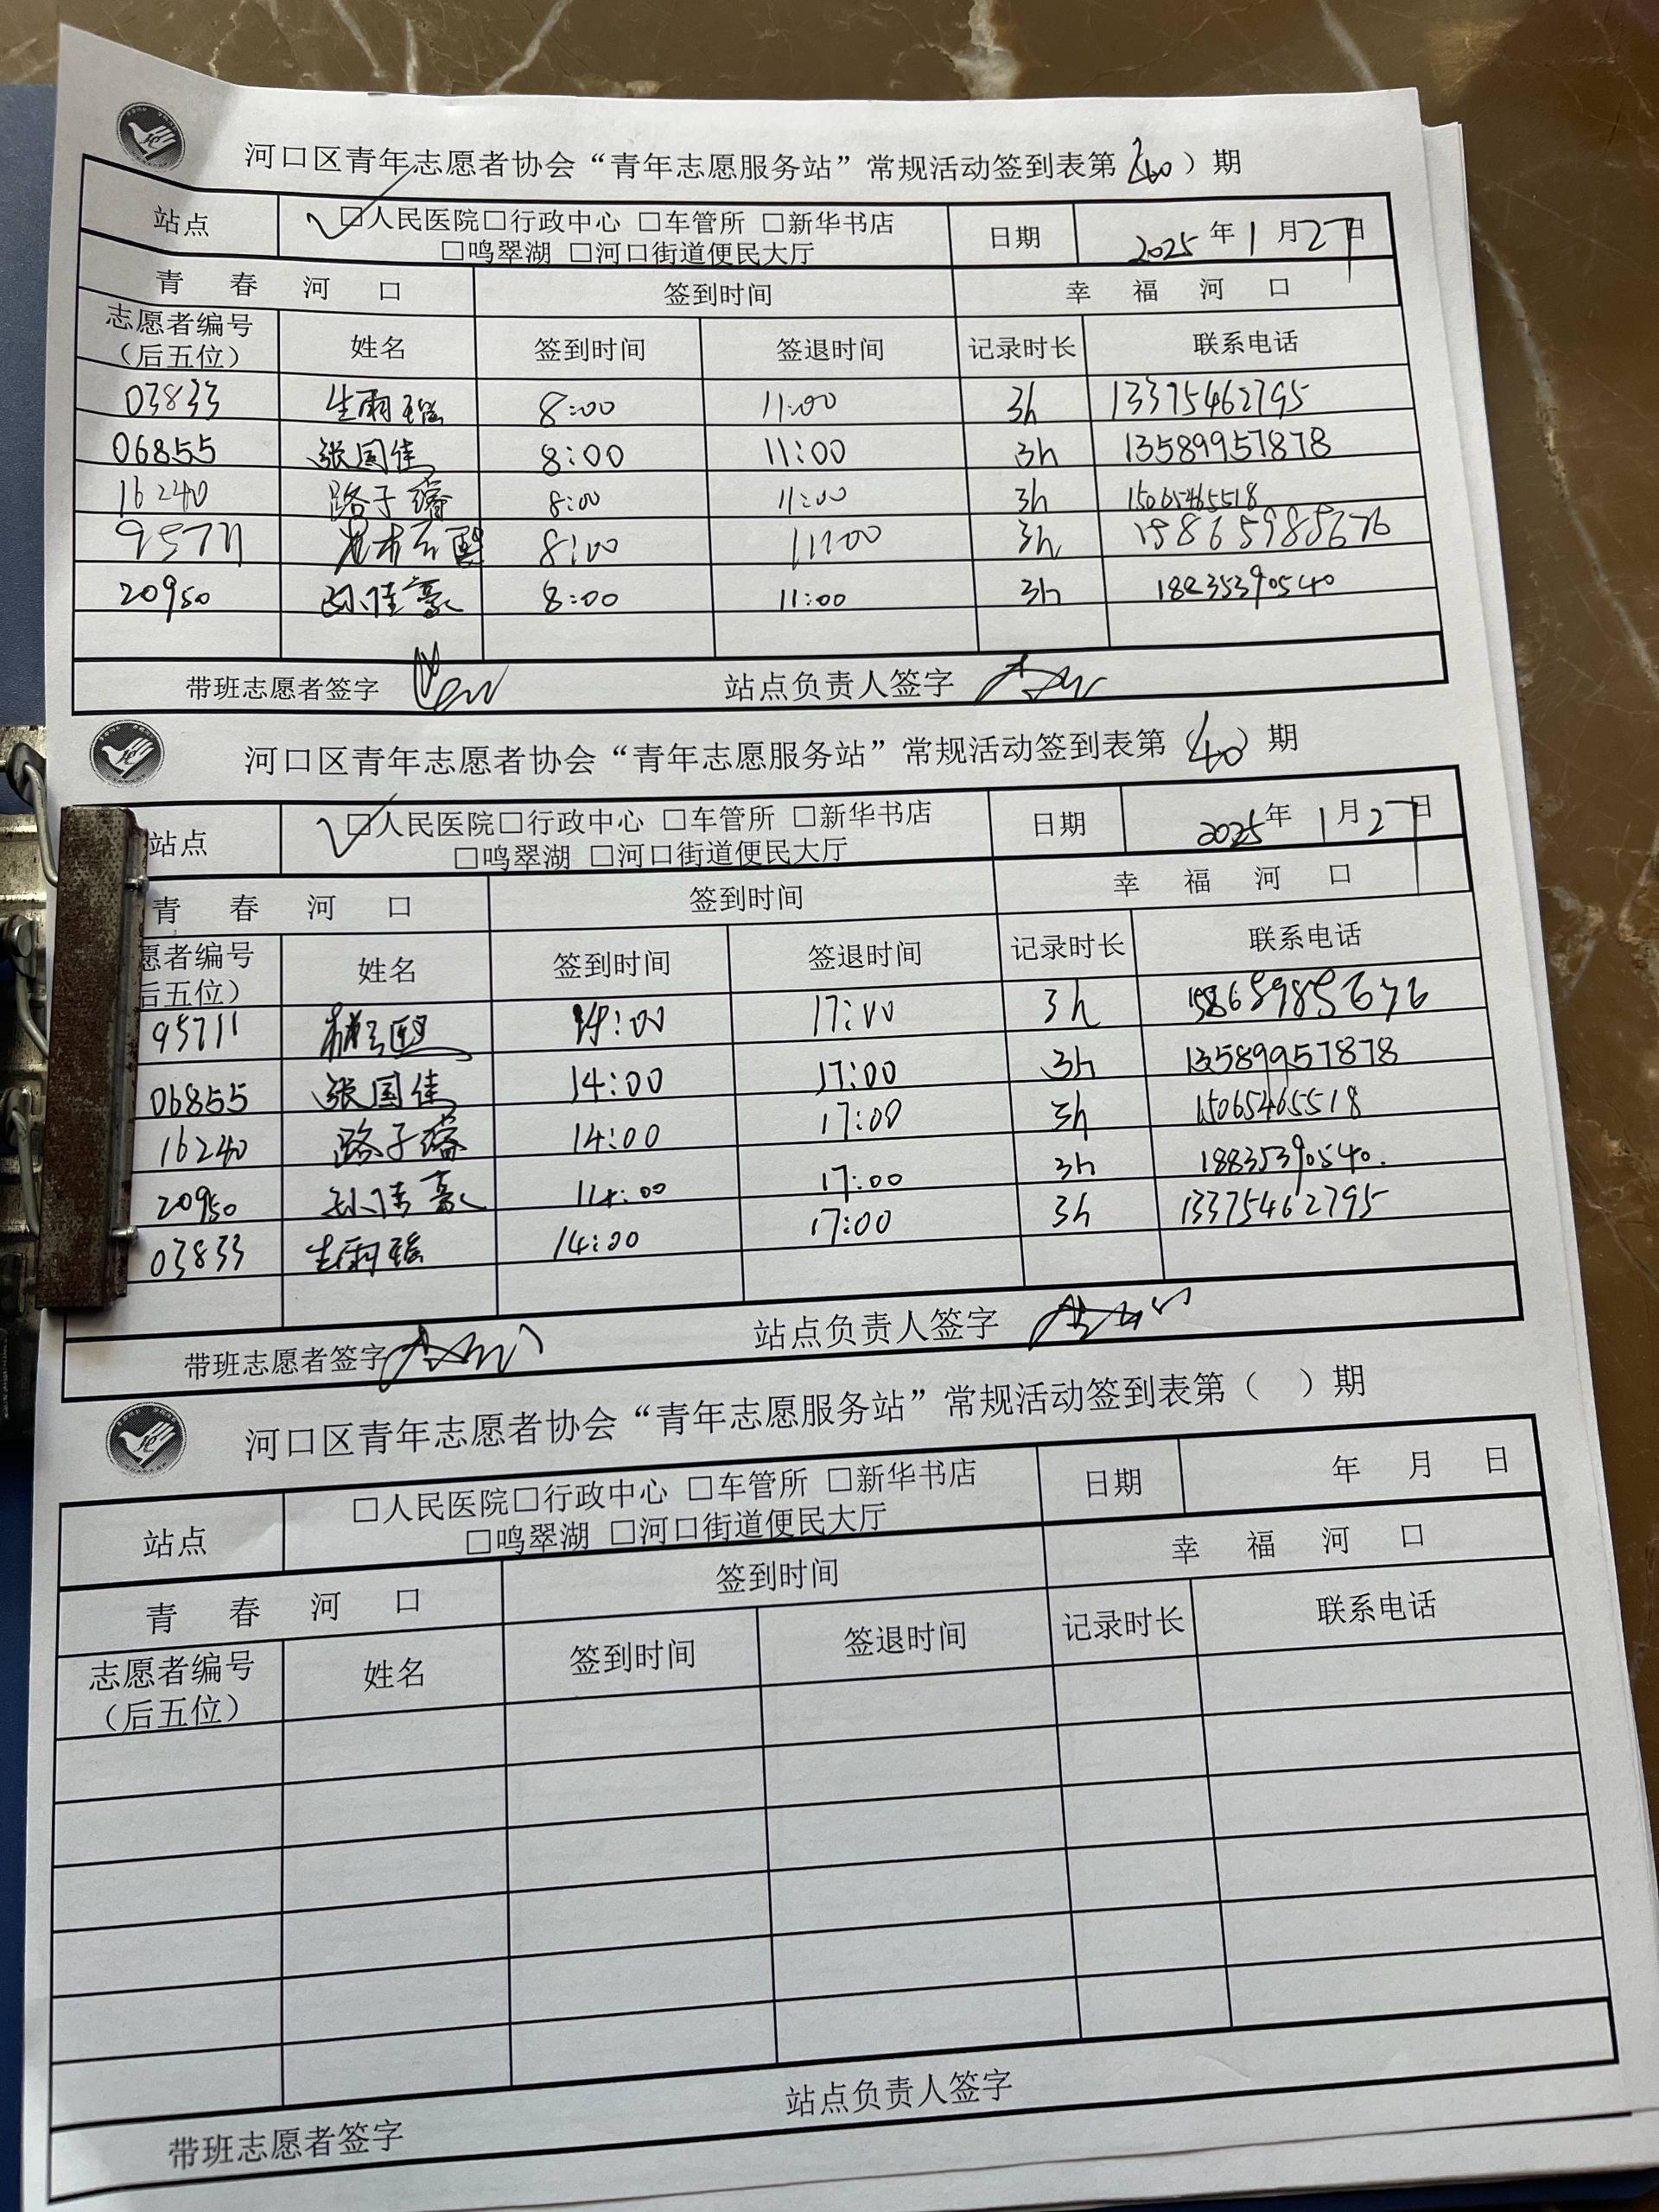 河口区青年志愿者协会“青年志愿服务站”常规活动签到表第（40）期
站点 □人民医院□行政中心 □车管所 □新华书店 日期 2025年1月27日
□鸣翠湖 □河口街道便民大厅
青春河口 签到时间 幸福河口
志愿者编号（后五位） 姓名 签到时间 签退时间 记录时长 联系电话
03833 生雨瑶 8:00 11:00 3h 13375462795
06855 张国佳 8:00 11:00 3h 13589957878
16240 路子睿 8:00 11:00 3h 15065465518
95711 8:00 11:00 3h 15865985676
20950 孙佳豪 8:00 11:00 3h 18835390540
带班志愿者签字 站点负责人签字
河口区青年志愿者协会“青年志愿服务站”常规活动签到表第（40）期
站点 □人民医院□行政中心 □车管所 □新华书店 日期 2025年1月27日
□鸣翠湖 □河口街道便民大厅
青春河口 签到时间 幸福河口
愿者编号 后五位） 姓名 签到时间 签退时间 记录时长 联系电话
95711 14:00 17:00 3h 15865985676
06855 张国佳 14:00 17:00 3h 13589957878
16240 路子睿 14:00 17:00 3h 15065465518
20950 孙佳豪 14:00 17:00 3h 18835390540.
03833 生雨瑶 14:00 17:00 3h 13375462795
带班志愿者签字 站点负责人签字
河口区青年志愿者协会“青年志愿服务站”常规活动签到表第（ ）期
站点 □人民医院□行政中心 □车管所 □新华书店 日期 年 月 日
□鸣翠湖 □河口街道便民大厅
青春河口 签到时间 幸福河口
志愿者编号（后五位） 姓名 签到时间 签退时间 记录时长 联系电话
带班志愿者签字 站点负责人签字